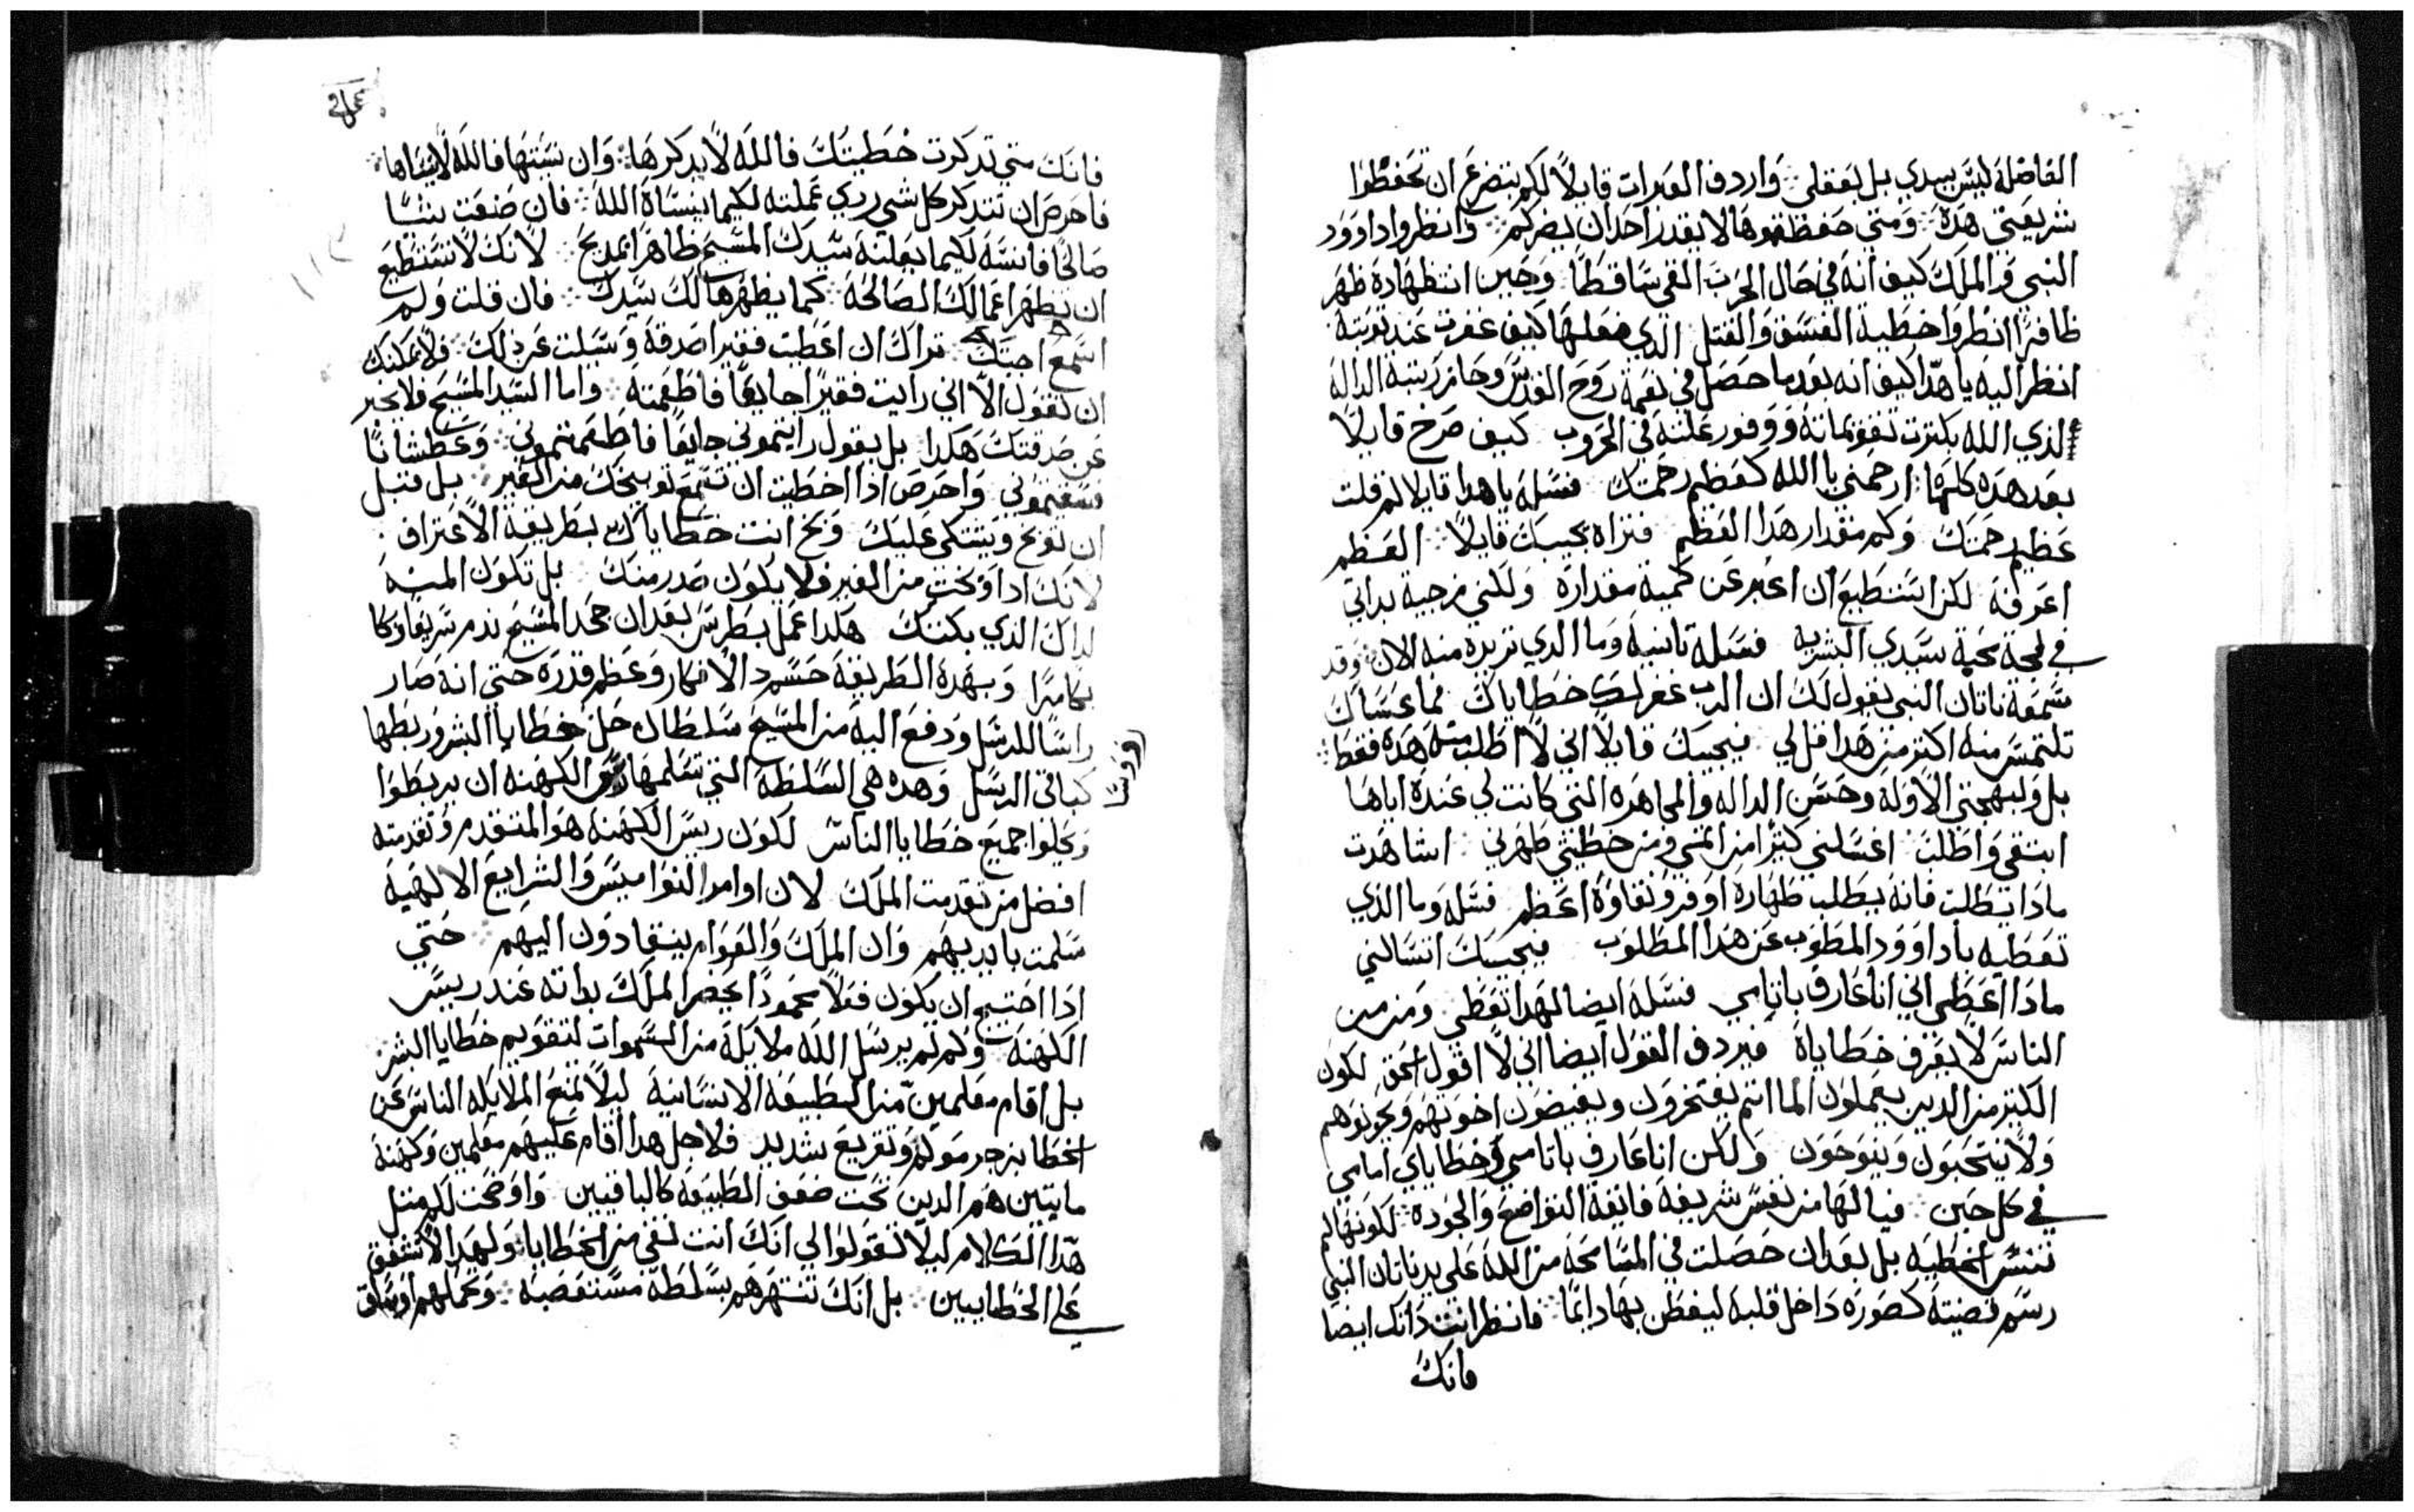 الفاضلة ليس بيدي بل بفعلي واردف العبرات قايلاً لكم بتضرع ان تحفظوا
شريعتي هده ومتي حفظتموها لا يقدر احد ان يضركم وانظروا داوود
النبي والملك كيف انه في حال الحرب القي ساقطاً وحين انتظهاره ظهر
ظافرًا انظروا خطية الفسق والقتل الدي فعلها كيف غفرت عند توبته
انظر اليه يا هدا كيف انه بعد ما حصل في نعمة روح القدس وحاز رتبة الداله
لدي الله بكترت تقويماته ووفور غلبته في الحروب كيف صرخ قايلاً
بعد هده كلها ارحمني يا الله كعظيم رحمتك فسله يا هدا قايلا لم قلت
عظيم رحمتك وكم مقدار هدا العظم فتراه يجيبك قايلاً العظم
اعرفه لكن استطيع ان اعبر عن كمية مقداره ولكني مزجية بداتي
في لجة محبة سيدي البشريه فسله تانية وما الدي تريده منه الان وقد
سمعة ناتان النبي يقول لك ان الرب غفر لك خطاياك فما عساك
تلتمس منه اكتر من هدا قل لي فيجيبك قايلاً اني لا اطلب منه هده فقط
بل ولبهجتي الاوله وحسن الداله والمجاهره التي كانت لي عنده اياها
ابتغي واطلب اغسلني كتيرًا من اتمي ومن خطيتي طهرني اشاهدت
مادا يطلب فانه يطلب طهارة اوفر ونقاوة اعظم فسله وما الدي
تعطيه يا داوود المطوب عن هدا المطلوب فيجيبك اتسالني
مادا اعطي اني انا عارف باتامي فسله ايضا لهدا تعطي ومن من
الناس لا يعرف خطاياه فيردف القول ايضا اني لا اقول الحق لكون
الكتير من الدين يعملون الماتم يفتخرون ويبغضون اخوتهم ويحزنوهم
ولا ينتحبون وينوحون ولكن انا عارف باتامي وخطاياي امامي
في كل حين فيا لها من نفس شريفة فايقة التواضع والجوده لكونها لم
تنس الخطيه بل بعد ان حصلت في المسامحة من الله علي يد ناتان النبي
رسم قضيته كصورة داخل قلبه ليفطن بها دايمًا فانظر انت داتك ايضا
فانك
فانك متي تدكرت خطيتك فالله لا يدكرها وان نسيتها فالله لا ينساها
فاحرص ان تتدكر كل شي ردي عملته لكيما ينساه الله فان صنعت شيئًا
صالحًا فانسه لكيما يعلنه سيدك المسيح ظاهرا بمديح لانك لا تستطيع
ان تظهر اعمالك الصالحة كما يظهرها لك سيدك فان قلت ولم
اسمع اجبتك تراك ان اعطيت فقيرا صدقة وسيلت عن دلك فلا يمكنك
ان تقول الا اني رايت فقيرًا جايعًا فاطعمته واما السيد المسيح فلا يخبر
عن صدقتك هكدا بل يقول رايتموني جايعًا فاطعمتموني وعطشانًا
فسقيتموني واحرص ادا اخطيت ان تسمع توبيخك من الغير بل قبل
ان توبخ ويشتكي عليك وبخ انت خطاياك بطريقة الاعتراف
لانك ادا وبخت من الغير فلا يكون صدر منك بل تكون المنة
لداك الدي بكتك هكدا عمل بطرس بعد ان جحد المسيح ندم سريعًا وبكا
بكا مرًا وبهده الطريقة حسم د الانكار وعظم قدره حتي انه صار
راسًا للرسل ودفع اليه من المسيح سلطان حل خطايا البشر وربطها
كباقي الرسل وهده هي السلطة التي تسلمها الكهنه ان يربطوا
ويحلوا جميع خطايا الناس لكون ريس الكهنة هو المتقدم وتقدمته
افضل من تقدمت الملك لان اوامر النواميس والشرايع الالهية
سلمت بايديهم وان الملك والعوام ينقادون اليهم حتي
ادا احتيج ان يكون فعلاً محمودًا يحضر الملك بداته عند ريس
الكهنة ولم لم يرسل الله ملايكة من السموات لتقويم خطايا البشر
بل اقام معلمين من الطبيعة الانسانية ليلا تمنع الملايكه الناس عن
الخطا بزجر مولم وتقريع شديد فلاجل هدا اقام عليهم معلمين وكهنة
مايتين هم الدين تحت ضعف الطبيعة كالباقيين واوضحت لكم متل
هدا الكلام ليلا تقولوا لي انك انت نقي من الخطايا ولهدا لا تشفق
علي الخطاييين بل انك تنتهرهم بسلطة مستعصبه وتحملهم اوساق